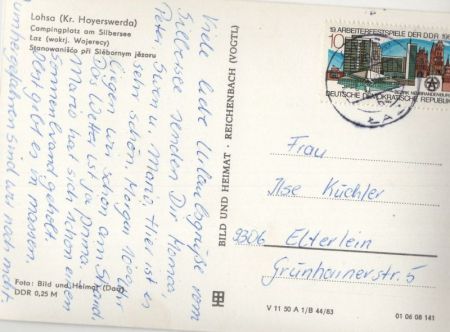 Lohsa (Kr. Hoyerswerda)
Campingplatz am Silbersee
Łaz (wokrj. Wojerecy)
Stanowanišćo při Slěbornym jězoru
Viele liebe Urlaubsgrüße vom
Silbersee senden Dir Monika,
Peter, Sven u. Mario. Hier ist es
sehr schön. Morgen 10.00 Uhr
liegen wir schon am Strand
Das Wetter ist ja prima.
Mario hat sich schon einen
Sonnenbrand geholt.
Dort geht es in massen.
umhergefahren sind wir noch nicht.
Foto: Bild und Heimat (Dau)
DDR 0,25 M
BILD UND HEIMAT · REICHENBACH (VOGTL)
19. ARBEITERFESTSPIELE DER DDR
10
BEZIRK NEUBRANDENBURG
DEUTSCHE DEMOKRATISCHE REPUBLIK
Frau
Ilse Küchler
9306 Elterlein
Grünhainerstr. 5
V 11 50 A 1/B 44/83
01 06 08 141